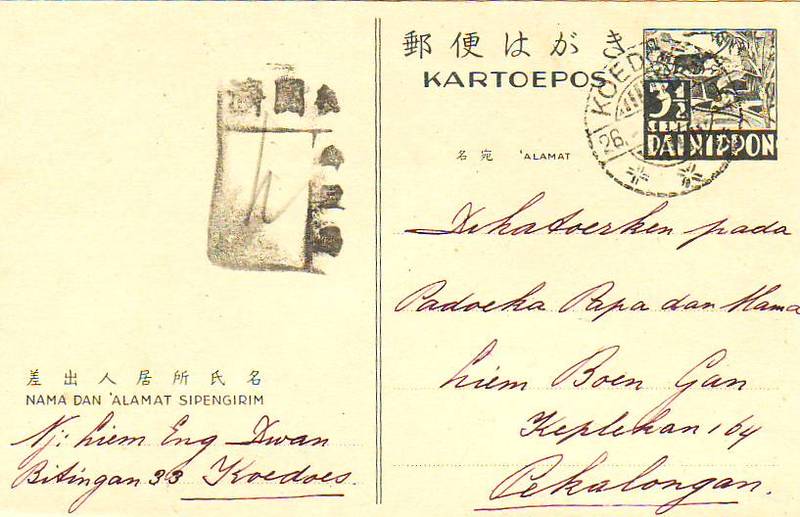 郵便はがき
KARTOEPOS
3½
CENT
DAI NIPPON
KOED
26
名宛 'ALAMAT
Dihatoerken pada
Padoeka Papa dan Mama
Liem Boen Gan
Keplekan 164
Pekalongan.
差出人居所氏名
NAMA DAN 'ALAMAT SIPENGIRIM
Nj: Liem Eng Dwan
Bitingan 33 Koedoes.